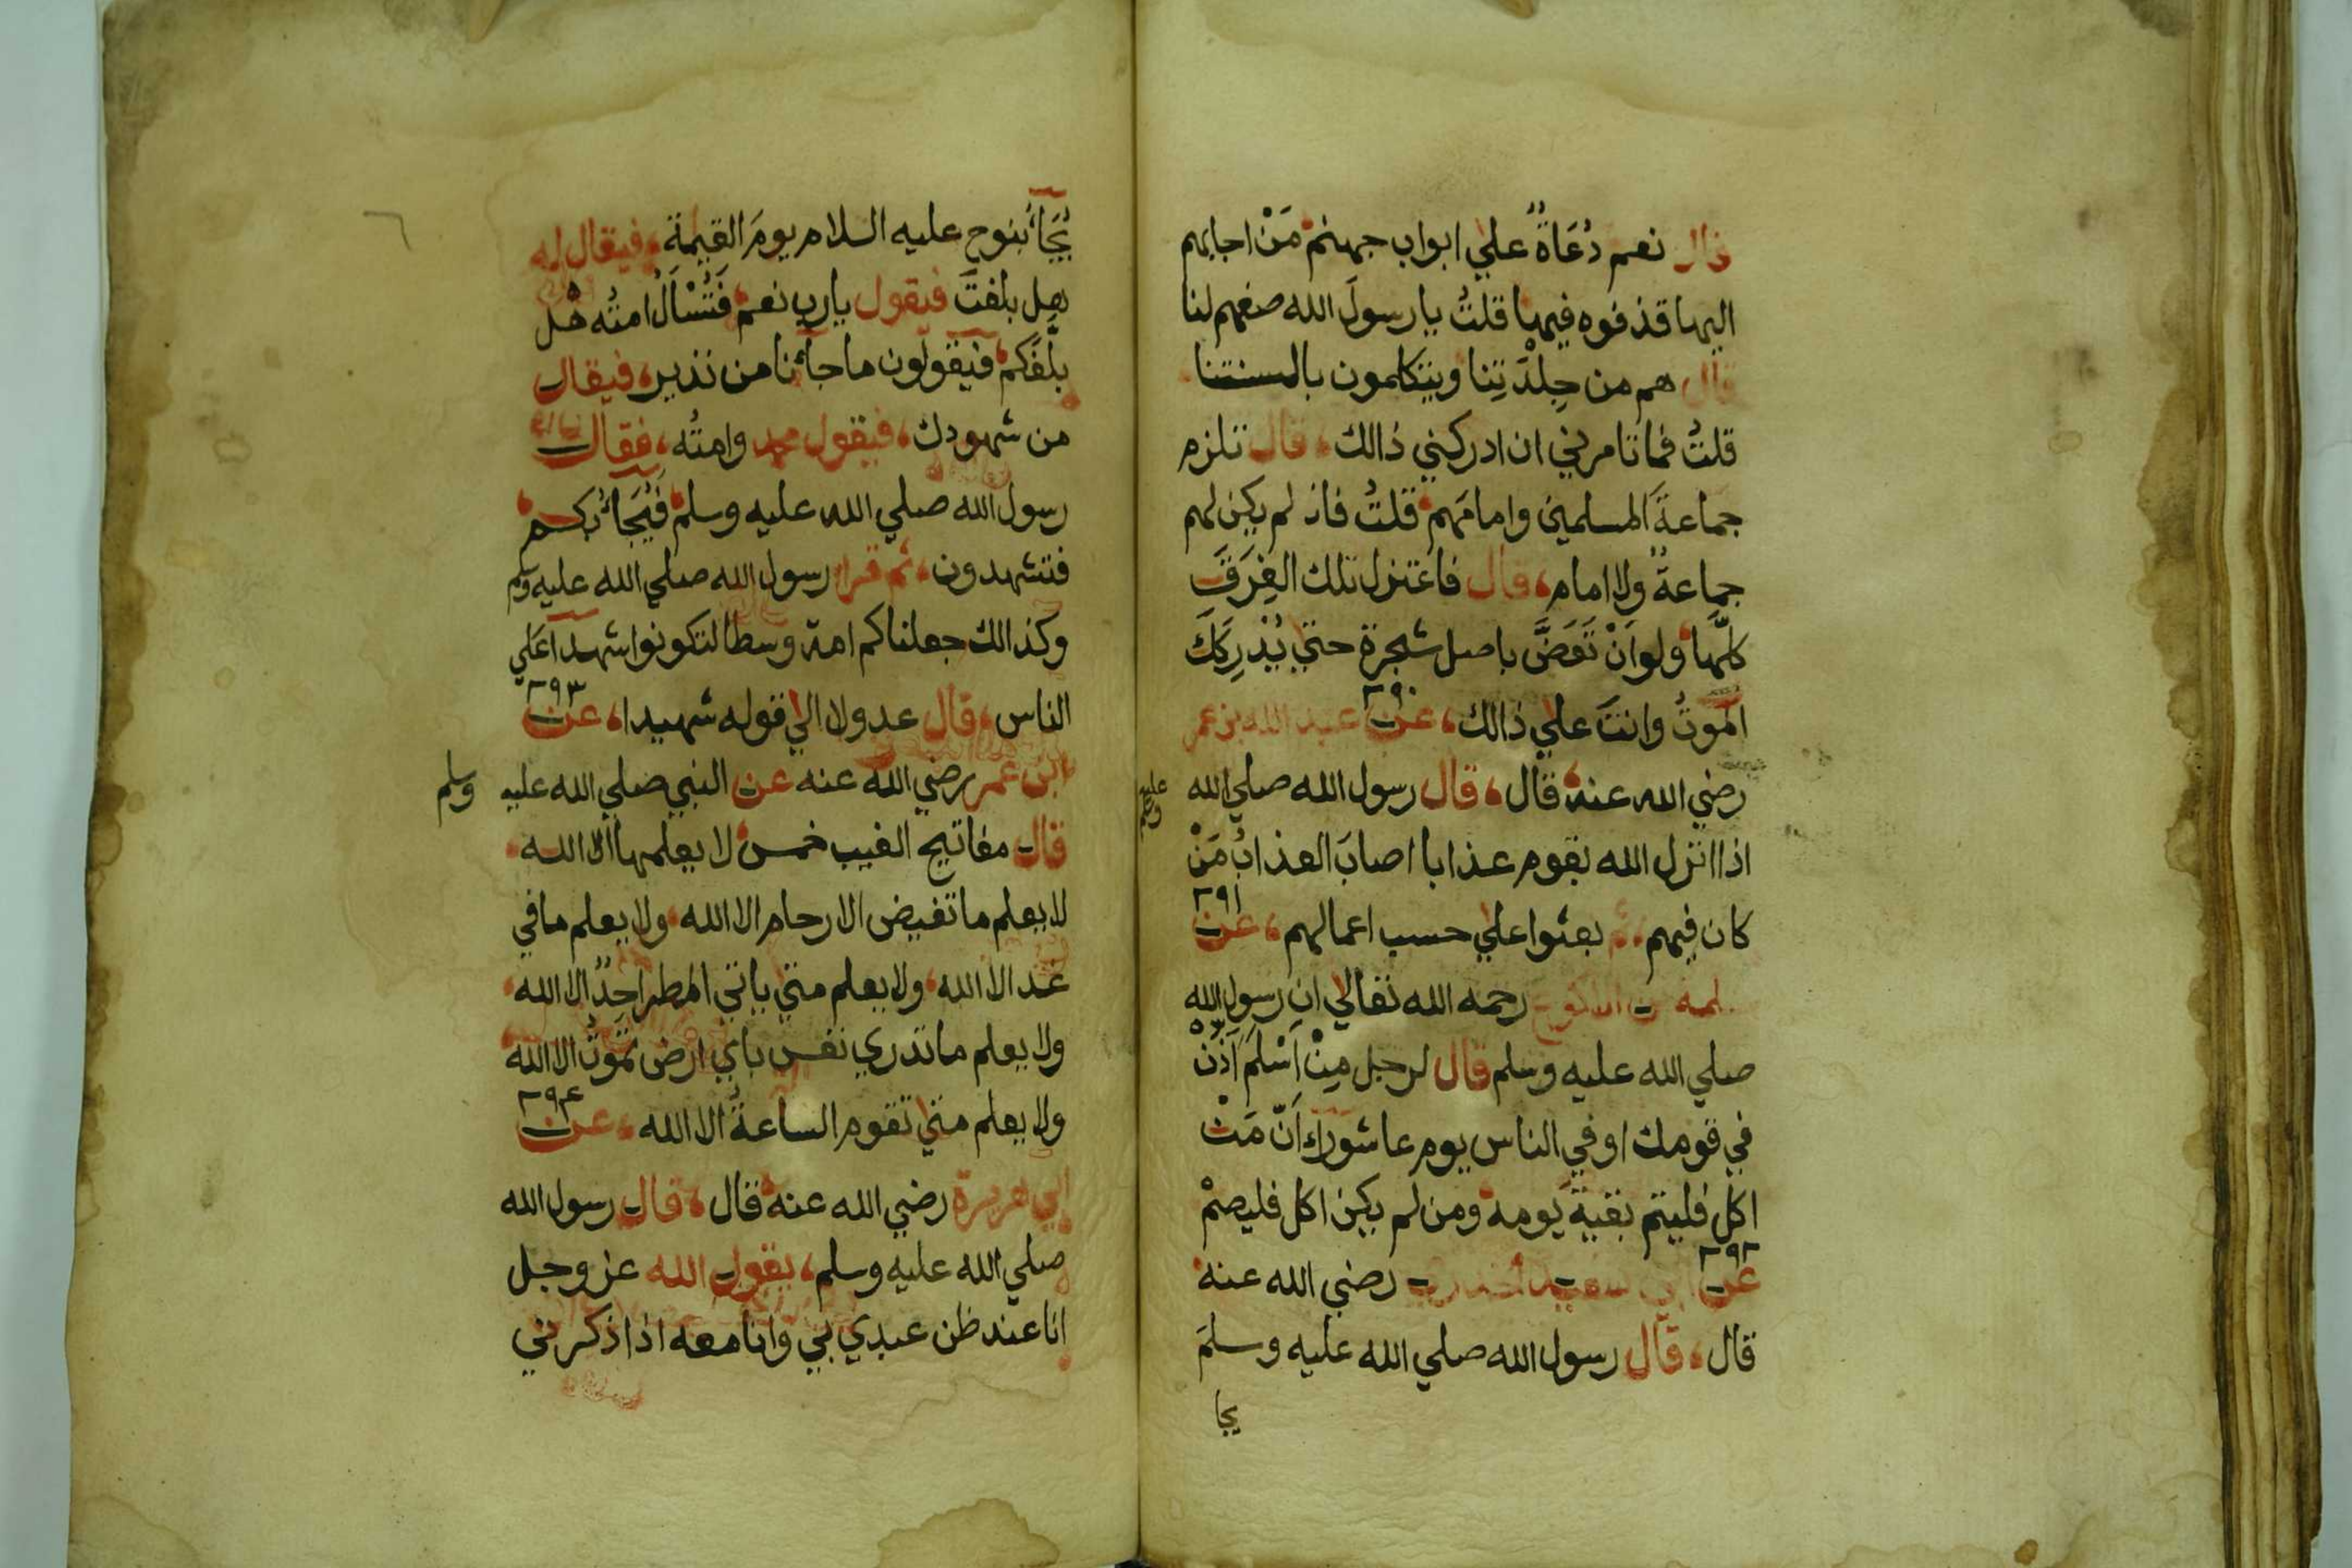 قال نعم دُعَاةٌ علي ابواب جهنم مَنْ اجابهم
اليها قذفوه فيها قلتُ يا رسولَ الله صفهم لنا
قال هم من جِلْدَتِنا ويتكلمون بالسنتنا
قلتُ فما تامرني ان ادركني ذالك قال تلزم
جماعةَ المسلمين وامامَهم قلتُ فان لم يكن لهم
جماعةٌ ولا امام قال فاعتزل تلك الفِرَقَ
كلَّها ولو اَنْ تَعَضَّ باصل شجرة حتي يُدْرِكَكَ
الموتُ وانتَ علي ذالك ٣٩٠ عن عبد الله بن عمر
رضي الله عنه قال قال رسول الله صلي الله عليه وسلم
اذا انزل الله بقوم عذابا اصابَ العذابُ مَنْ
كان فيهم ثم بعثوا علي حسب اعمالهم ٣٩١ عن
سلمة بن الاكوع رحمه الله تعالي ان رسول الله
صلي الله عليه وسلم قال لرجل مِنْ اَسْلَمَ اَذِّنْ
في قومك او في الناس يوم عاشوراء اَنَّ مَنْ
اكل فليتم بقيةَ يومه ومن لم يكن اكل فليصمْ
٣٩٢ عن ابي سعيد الخدري رضي الله عنه
قال قال رسول الله صلي الله عليه وسلمَ
يجا
يُجَاءُ بنوح عليه السلام يومَ القيمة فيقال له
هل بلغتَ فيقول يا رب نعم فَتُسْأَلُ امتُه هل
بلَّغكم فيقولون ما جاءنا من نذير فيقال
من شهودك فيقول محمد وامتُه فقال
رسول الله صلي الله عليه وسلم فَيُجَاءُ بكم
فتشهدون ثم قرا رسول الله صلي الله عليه وسلم
وكذالك جعلناكم امة وسطا لتكونوا شهدا علي
الناس قال عدولا الي قوله شهيدا ٣٩٣ عن
ابن عمر رضي الله عنه عن النبي صلي الله عليه وسلم
قال مفاتيح الغيب خمس لا يعلمها الا الله
لا يعلم ما تغيض الارحام الا الله ولا يعلم ما في
غد الا الله ولا يعلم متي ياتي المطر احدٌ الا الله
ولا يعلم ما تدري نفس باي ارض تموتُ الا الله
ولا يعلم متي تقوم الساعةُ الا الله ٣٩٤ عن
ابي هريرة رضي الله عنه قال قال رسول الله
صلي الله عليه وسلم يقول الله عز وجل
انا عند ظن عبدي بي وانا معه اذا ذكرني